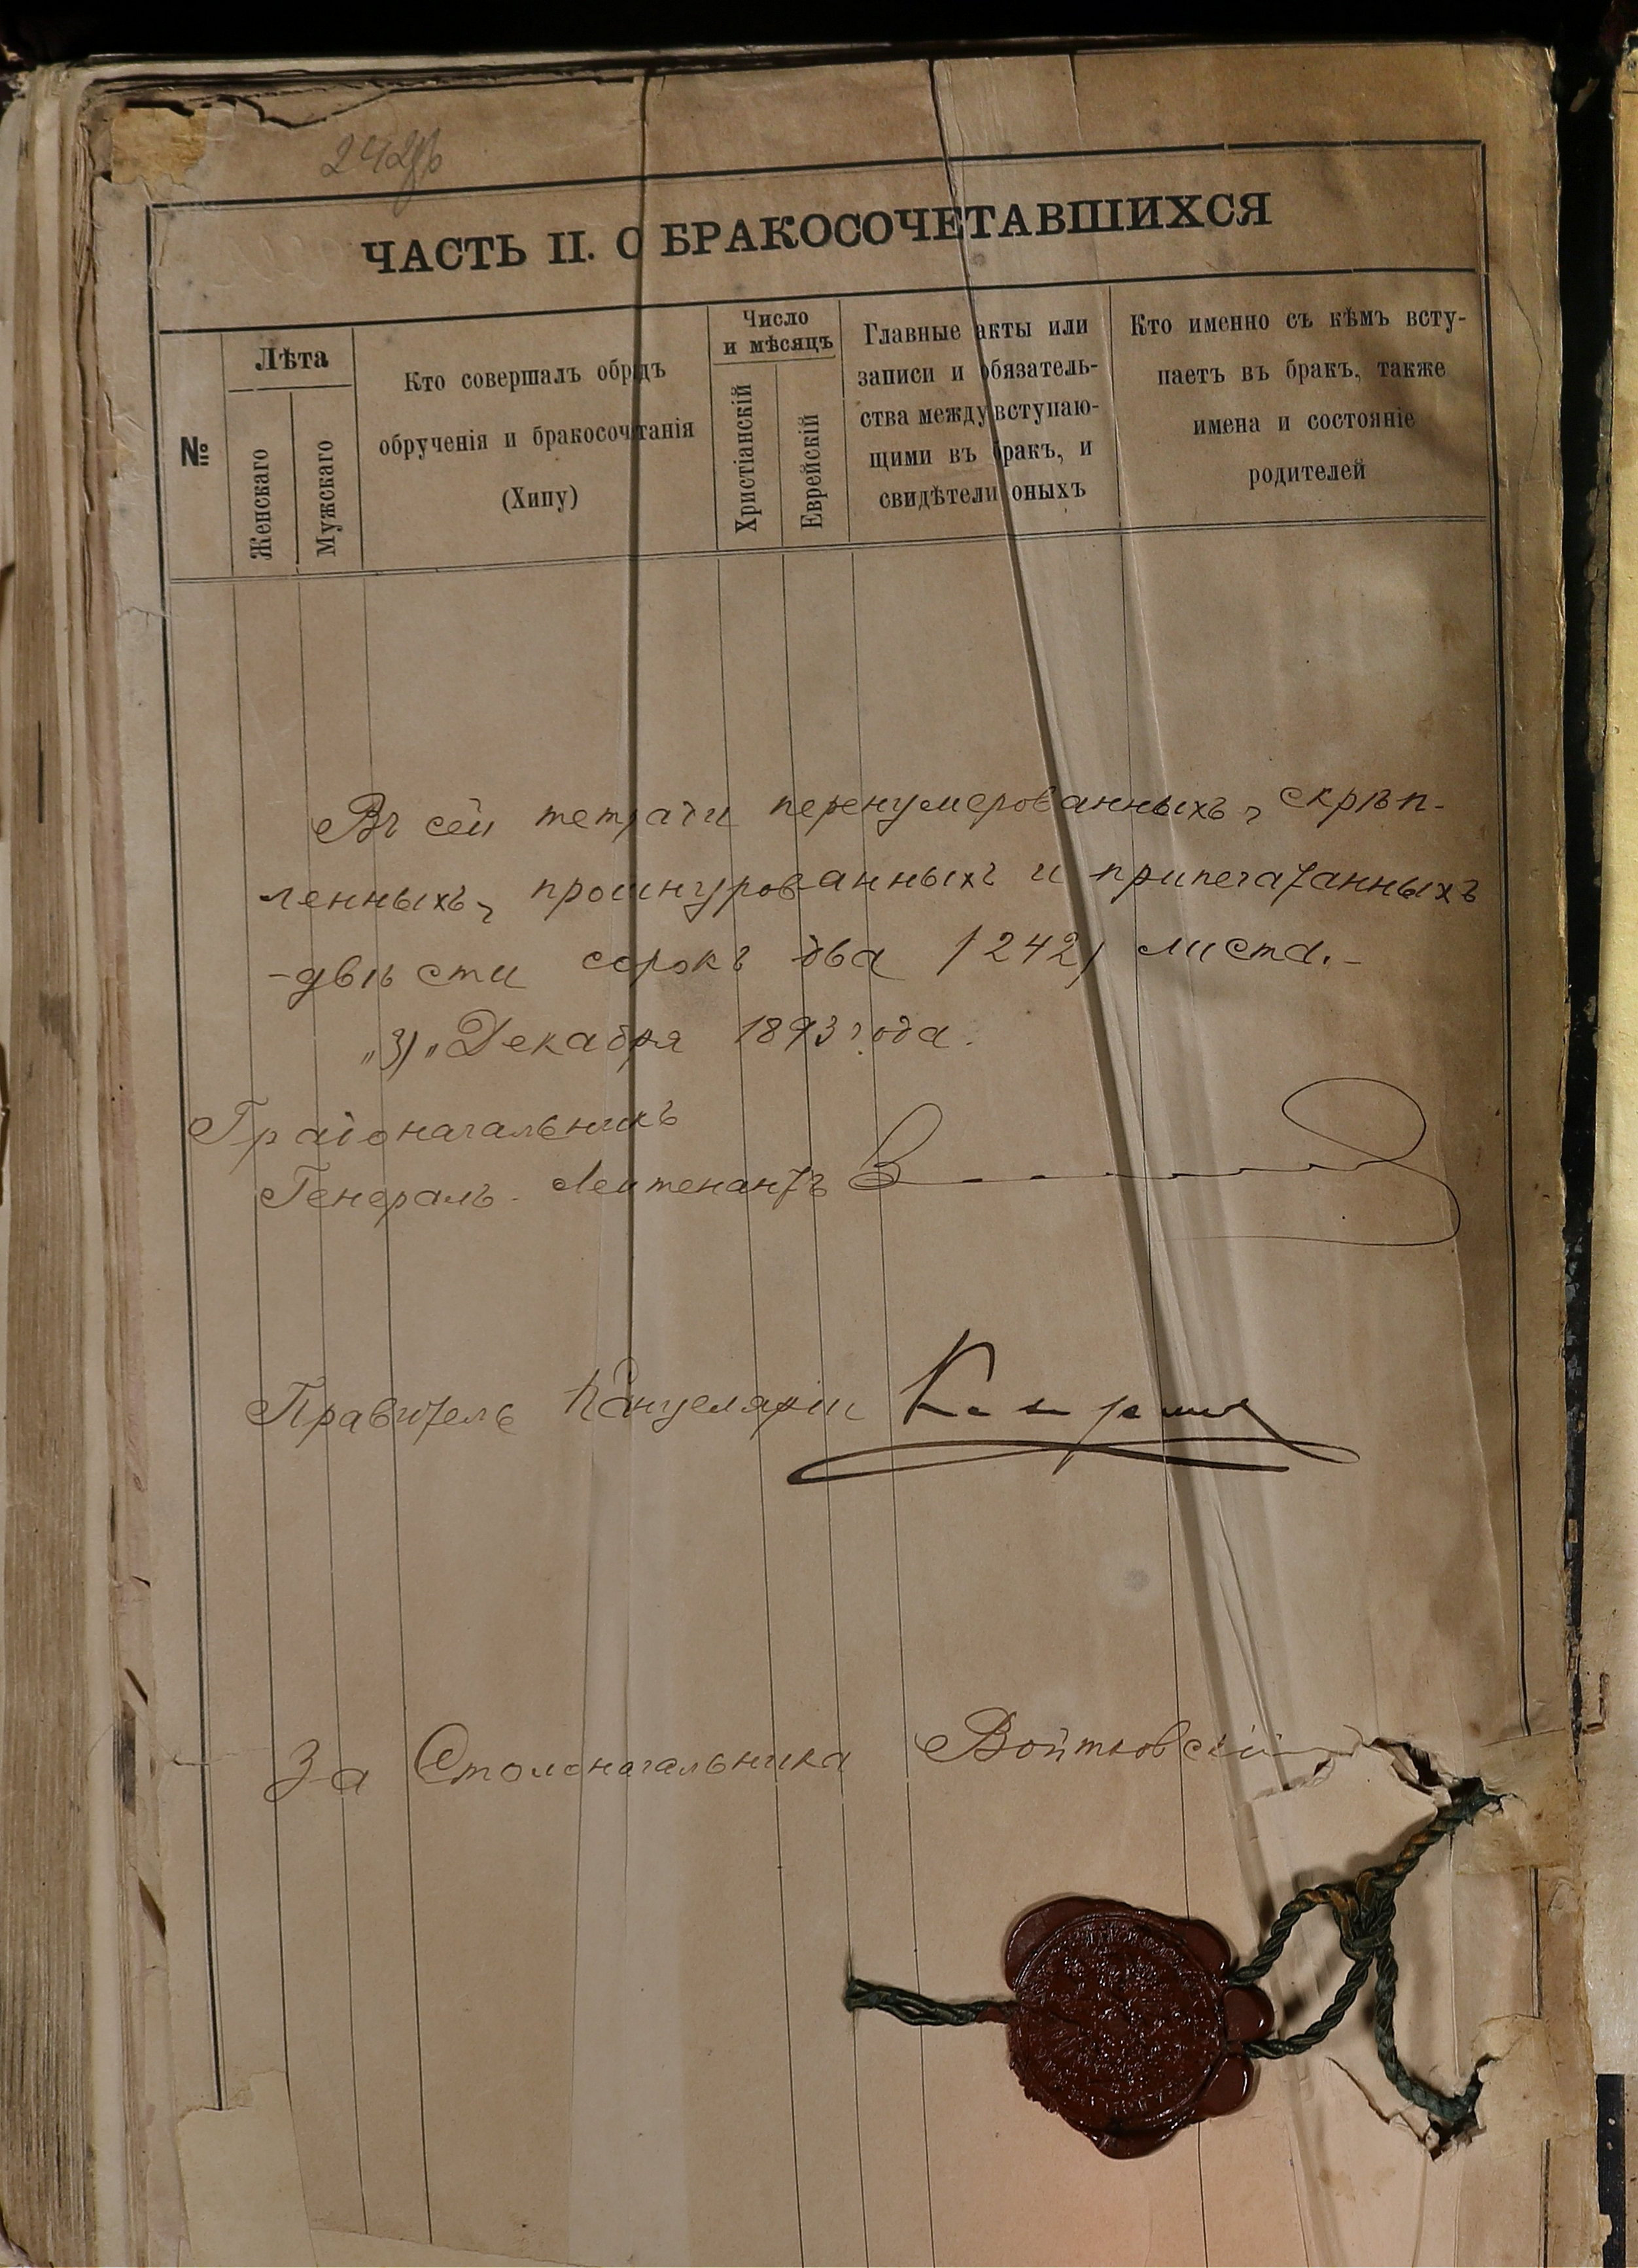 242
ЧАСТЬ II. О БРАКОСОЧЕТАВШИХСЯ
№
Лѣта
Женскаго
Мужскаго
Кто совершалъ обрядъ
обрученія и бракосочетанія
(Хипу)
Число
и мѣсяцъ
Христіанскій
Еврейскій
Главные акты или
записи и обязатель-
ства между вступаю-
щими въ бракъ, и
свидѣтели оныхъ
Кто именно съ кѣмъ всту-
паетъ въ бракъ, также
имена и состояніе
родителей
Въ сей тетради перенумерованныхъ, скрѣп-
ленныхъ, прошнурованныхъ и припечатанныхъ
-двѣсти сорокъ два /242/ листа.-
„31„ Декабря 1893 года.
Градоначальникъ
Генералъ-Лейтенантъ
Правитель Канцеляріи
За Столоначальника Войтковскій